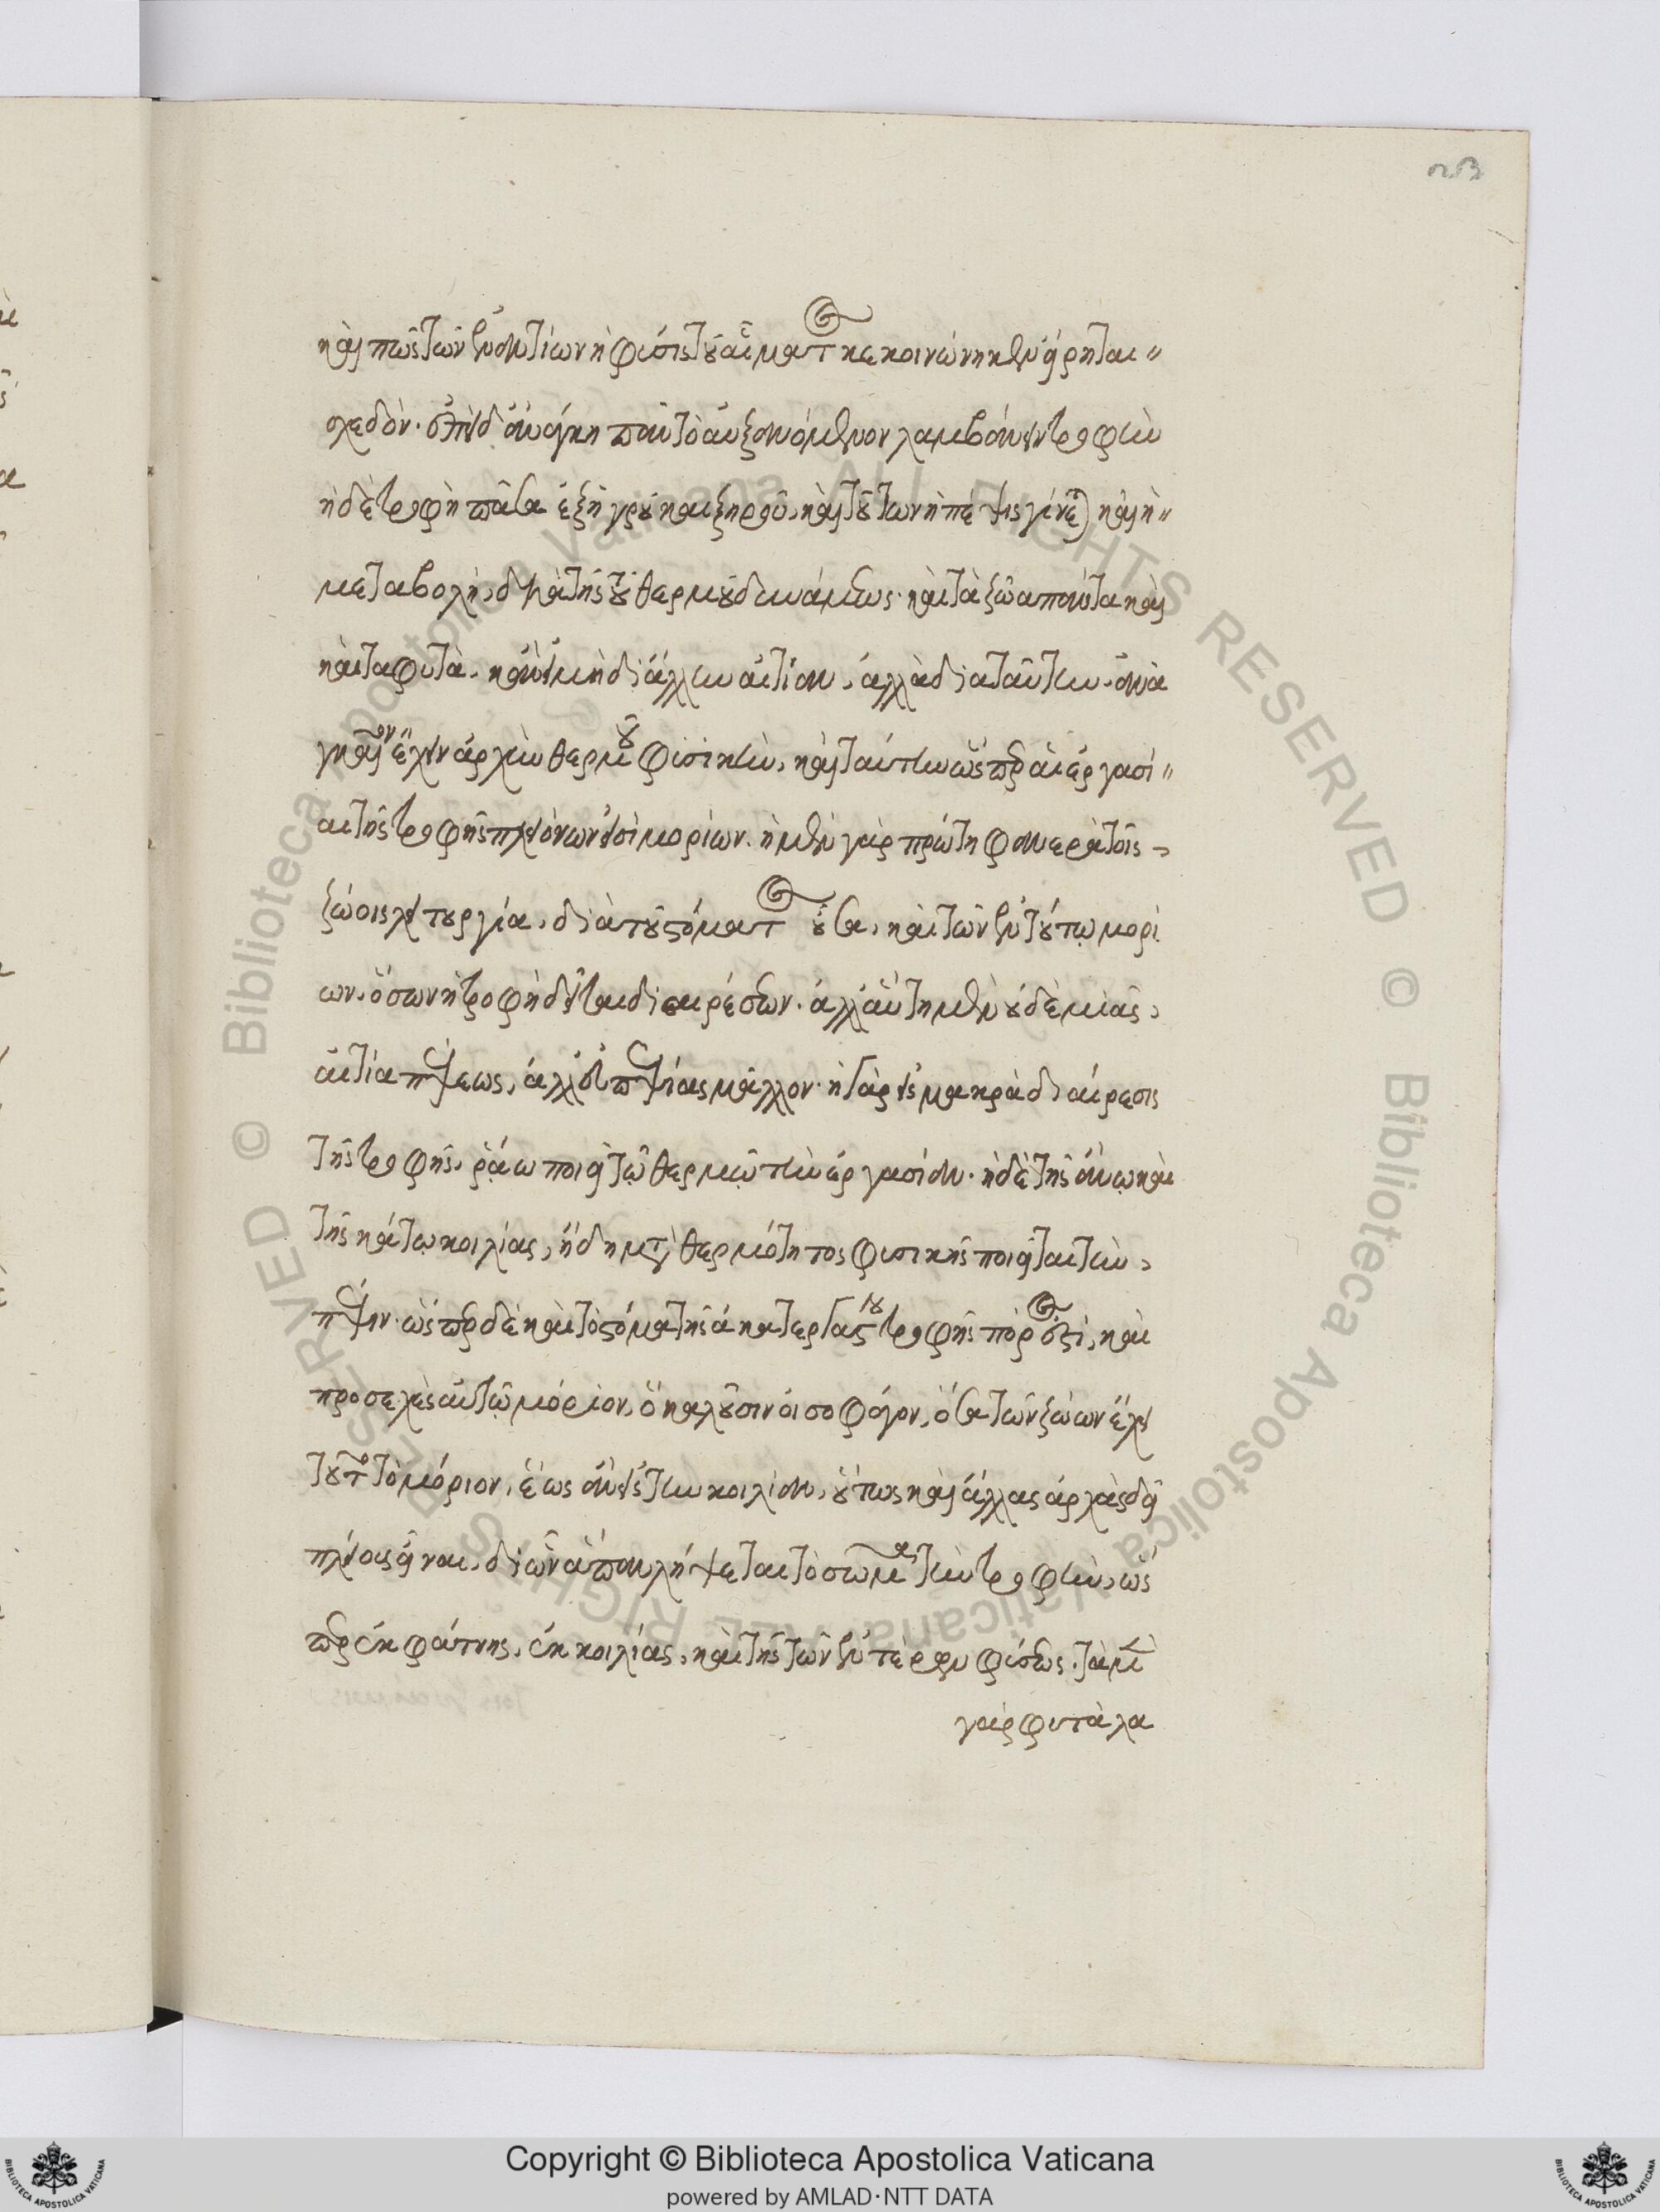 23
καὶ πῶς τῶν ἐναντίων ἡ φύσις τοῦ αἵματος κεκοινώνηκεν εἴρηται
σχεδόν. ἐπεὶ δ' ἀνάγκη πᾶν τὸ αὐξανόμενον λαμβάνειν τροφὴν
ἡ δὲ τροφὴ πᾶσα ἐξ ὑγροῦ καὶ ξηροῦ, καὶ τούτων ἡ πέψις γίνεται καὶ ἡ
μεταβολὴ, διὰ τῆς τοῦ θερμοῦ δυνάμεως. καὶ τὰ ζῶα πάντα καὶ
καὶ τὰ φυτὰ, κἂν εἰ μὴ δι' ἄλλην αἰτίαν, ἀλλὰ διὰ ταύτην, ἀνα
γκαῖον ἔχειν ἀρχὴν θερμοῦ φυσικὴν, καὶ ταύτην ὥσπερ αἱ ἐργασί
αι τῆς τροφῆς πλειόνων εἰσὶ μορίων. ἡ μὲν γὰρ πρώτη φανερὰ τοῖς
ζώοις λειτουργία, διὰ τοῦ στόματος οὖσα, καὶ τῶν ἐν τούτῳ μορί
ων, ὅσων ἡ τροφὴ δεῖται διαιρέσεων. ἀλλ' αὕτη μὲν οὐδὲ μιᾶς,
αἰτία πέψεως, ἀλλ' εὐπεψίας μᾶλλον. ἡ γὰρ εἰς μακρὰ διαίρεσις
τῆς τροφῆς, ῥάω ποιεῖ τῷ θερμῷ τὴν ἐργασίαν. ἡ δὲ τῆς ἄνω καὶ
τῆς κάτω κοιλίας, ἤδη μετὰ θερμότητος φυσικῆς ποιεῖται τὴν,
πέψιν. ὥσπερ δὲ καὶ τὸ στόμα τῆς ἀκατεργάστου τροφῆς πόρος ἐστὶ, καὶ
προσεχὲς αὐτῷ μόριον, ὃ καλοῦσιν οἰσοφάγον, ὅσα τῶν ζώων ἔχει
τοῦτο τὸ μόριον, ἕως ἂν εἰς τὴν κοιλίαν, οὕτως καὶ ἄλλας ἀρχὰς δεῖ
πλείους εἶναι, δι' ὧν ἅπαν λήψεται τὸ σῶμα τὴν τροφὴν, ὥσ
περ ἐκ φάτνης, ἐκ κοιλίας, καὶ τῆς τῶν ἐντέρων φύσεως. τὰ μὲν
γὰρ φυτὰ λα
Copyright © Biblioteca Apostolica Vaticana
powered by AMLAD·NTT DATA